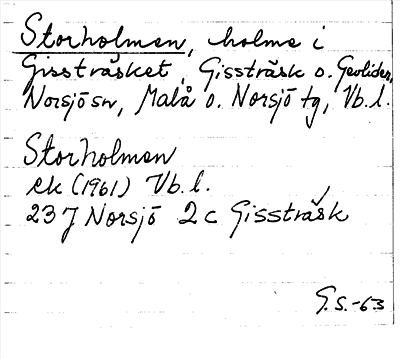 Storholmen, holme i
Gissträsket, Gissträsk o. Gervliden,
Norsjö sn, Malå o. Norsjö tg, Vb. l.
Storholmen
ek (1961) Vb. l.
23 J Norsjö 2 c Gissträsk
G.S.-63